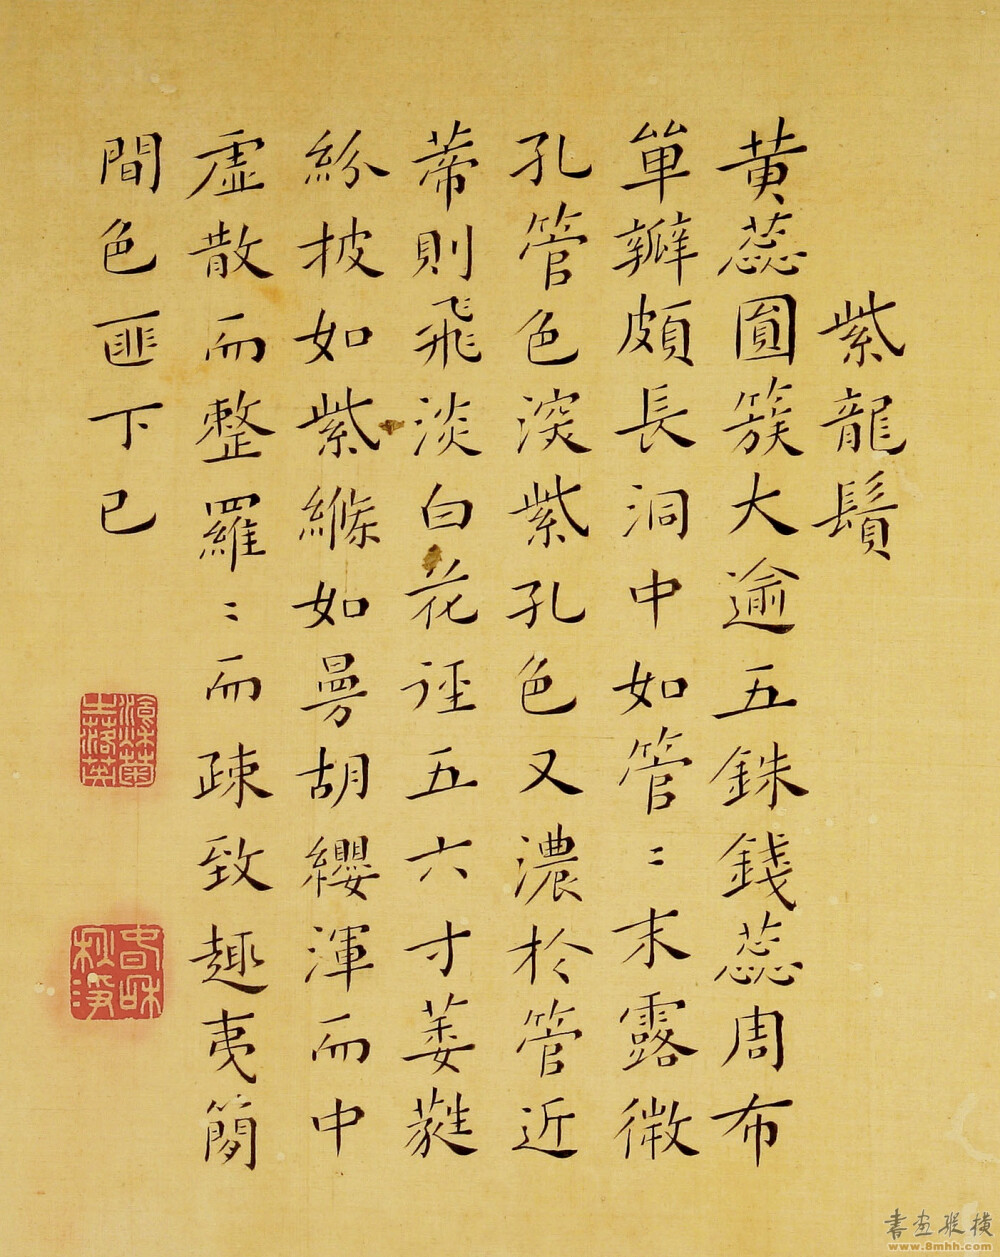 紫龍鬚
黄蕊圓簇大逾五銖錢蕊周布
單瓣頗長洞中如管〻末露微
孔管色深紫孔色又濃於管近
蒂則飛淡白花徑五六寸萎蕤
紛披如紫縧如曼胡纓渾而中
虛散而整羅〻而疎致趣夷簡
間色匪下已
春和
秋淨
書画縱橫
www.8mhh.com